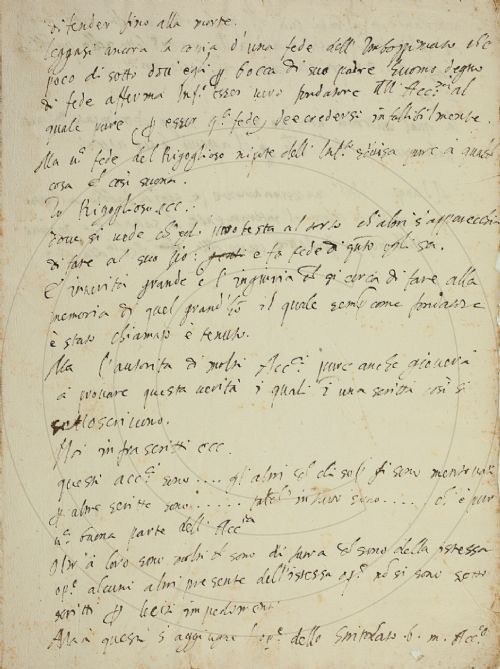 difender fino alla morte.
leggasi ancora la copia d'una fede dell' Imborrinato
poco di sotto dov' egli p bocca di suo padre huomo degno
di fede afferma esser vero fondatore dll' Acc.ª al
quale pure p esser fede, dee credersi infallibilmente.
Ma fede del Rigoglioso nipote dell' pure a questa
cosa e così suona.
Io Rigoglioso ecc.
dove si vede ch'egli protesta al torto ch'altri s'apparecchia
di fare al suo e fa fede di quto egli sa.
E' in verità grande è l' ingiuria si cerca di fare alla
memoria di quel grand' il quale come fondatore
è stato chiamato è tenuto.
Ma l'autorità di molti Acc.ci pure anche gioverà
a provare questa verità i quali i una scritta così si
sottoscrivono.
Noi infrascritti ecc.
questi acc.ci sono .... gl' altri
p altre scritte sono ...... in tutto sono ..... ch' è pur
buona parte dell' Acc.ia
Oltr' à loro sono molti sono di fuora sono della istessa
op.e alcuni altri presente dell'istessa op.e nō si sono sotto
scritti p impedimenti
Ma a questa s' aggiugne l' op.e dello b. m. Acc.co